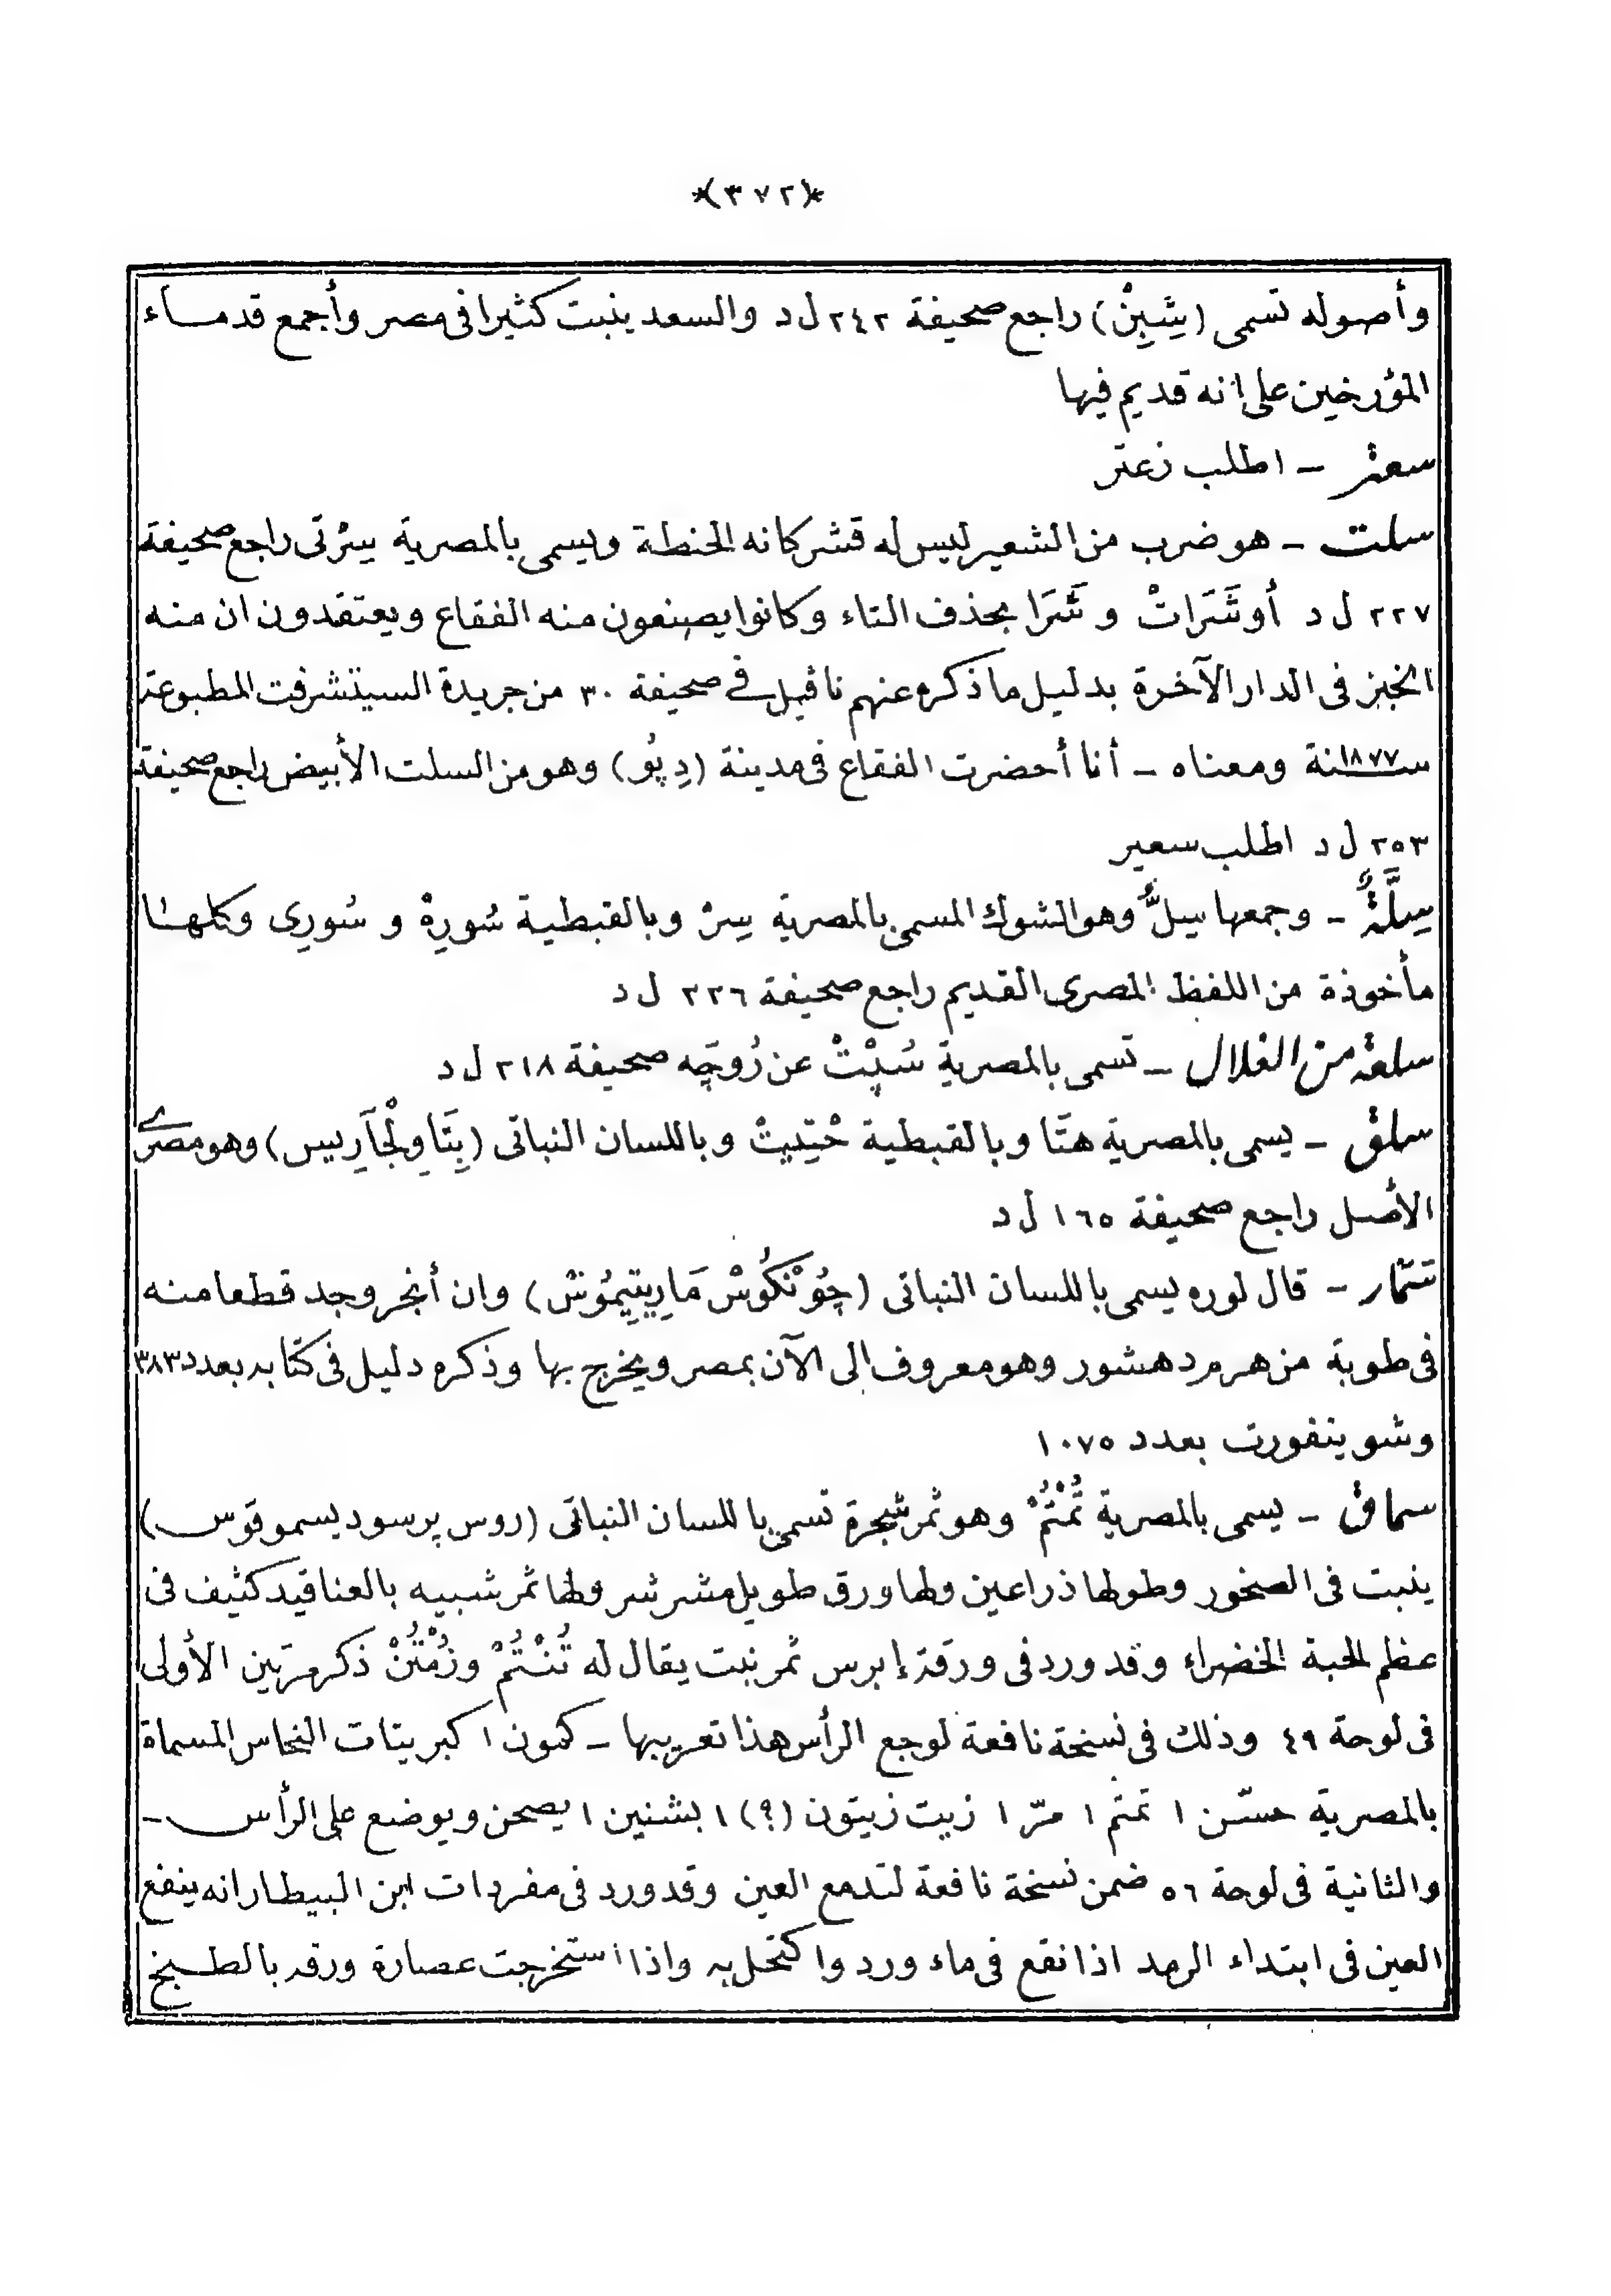 *(٣٧٢)*
وأصوله تسمى (شِبِنْ) راجع صحيفة ٢٤٢ ل د والسعد ينبت كثيرا فى مصر وأجمع قدماء
المؤرخين على انه قديم فيها
سعتر – اطلب زعتر
سلت – هو ضرب من الشعير ليس له قشر كانه الحنطة ويسمى بالمصرية سِرْتى راجع صحيفة
٢٢٧ ل د أو شَرَاتْ و شَرَا بحذف التاء وكانوا يصنعون منه الفقاع ويعتقدون ان منه
الخبز فى الدار الآخرة بدليل ما ذكره عنهم ناڤيل فى صحيفة ٣٠ من جريدة السيتشرفت المطبوعة
سنة ١٨٧٧ ومعناه – أنا أحضرت الفقاع فى مدينة (دِپُو) وهو من السلت الأبيض راجع صحيفة
٢٥٣ ل د اطلب سعير
سِلَّةٌ – وجمعها سِلٌّ وهو الشوك المسمى بالمصرية سِرْ وبالقبطية سُورِهْ و سُورِى وكلها
مأخوذة من اللفظ المصرى القديم راجع صحيفة ٢٢٦ ل د
سلعة من الغلال – تسمى بالمصرية سُپْتْ عن رُوجَه صحيفة ٢١٨ ل د
سلق – يسمى بالمصرية هتَا وبالقبطية وباللسان النباتى (بِتَا ولْجَارِيس) وهو مصرى
الأصل راجع صحيفة ١٦٥ ل د
قال لوره يسمى باللسان النباتى (چُوْنكُوسْ مَارِيتِيمُوسْ) وان أنجر وجد قطعا منه
فى طوبة من هرم دهشور وهو معروف الى الآن بمصر ويخرج بها وذكره دليل فى كتابه بعدد ٣٨٣
وشوينفورت بعدد ١٠٧٥
سماق – يسمى بالمصرية تُمْتُمْ وهو ثمر شجرة تسمى باللسان النباتى (روس پرسود يسموقوس)
ينبت فى الصخور وطولها ذراعين ولها ورق طويل مشرشر ولها ثمر شبيه بالعناقيد كثيف فى
عظم الحبة الخضراء وقد ورد فى ورقة إبرس ثمر نبت يقال له تُنْتُمْ وزُمْتُنْ ذكر مرتين الأولى
فى لوحة ٤٩ وذلك فى نسخة نافعة لوجع الرأس هذا تعريبها – كمون ١ كبريتات النحاس المسماة
بالمصرية حسّن ١ تمتم ١ مرّ ١ زيت زيتون (؟) ١ بشنين ١ يصحن ويوضع على الرأس –
والثانية فى لوحة ٥٦ ضمن نسخة نافعة لتدمع العين وقد ورد فى مفردات ابن البيطار انه ينفع
العين فى ابتداء الرمد اذا نقع فى ماء ورد واكتحل به واذا استخرجت عصارة ورقه بالطبخ